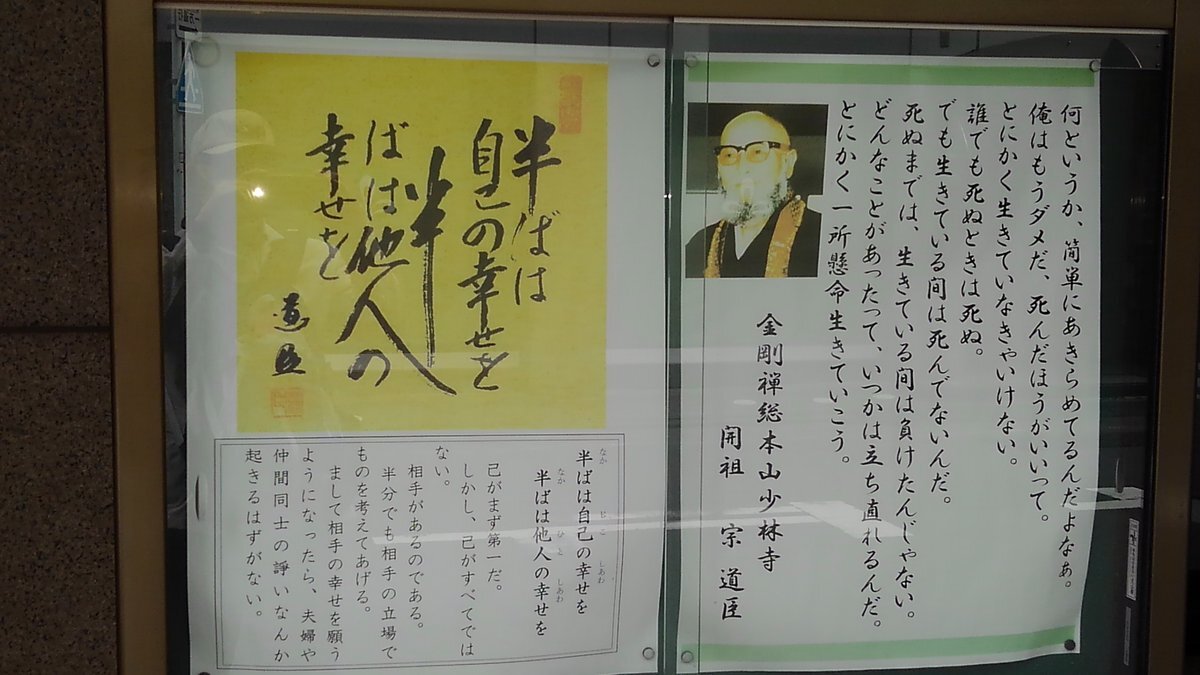 何というか、簡単にあきらめてるんだよなぁ。
俺はもうダメだ、死んだほうがいいって。
とにかく生きていなきゃいけない。
誰でも死ぬときは死ぬ。
でも生きている間は死んでないんだ。
死ぬまでは、生きている間は負けたんじゃない。
どんなことがあったって、いつかは立ち直れるんだ。
とにかく一所懸命生きていこう。
金剛禅総本山少林寺
開祖 宗 道臣
半ばは
自己の幸せを
半
ばは他人の
幸せを
道臣
半ばは自己の幸せを
半ばは他人の幸せを
己がまず第一だ。
しかし、己がすべてでは
ない。
相手があるのである。
半分でも相手の立場で
ものを考えてあげる。
まして相手の幸せを願う
ようになったら、夫婦や
仲間同士の諍いなんか
起きるはずがない。